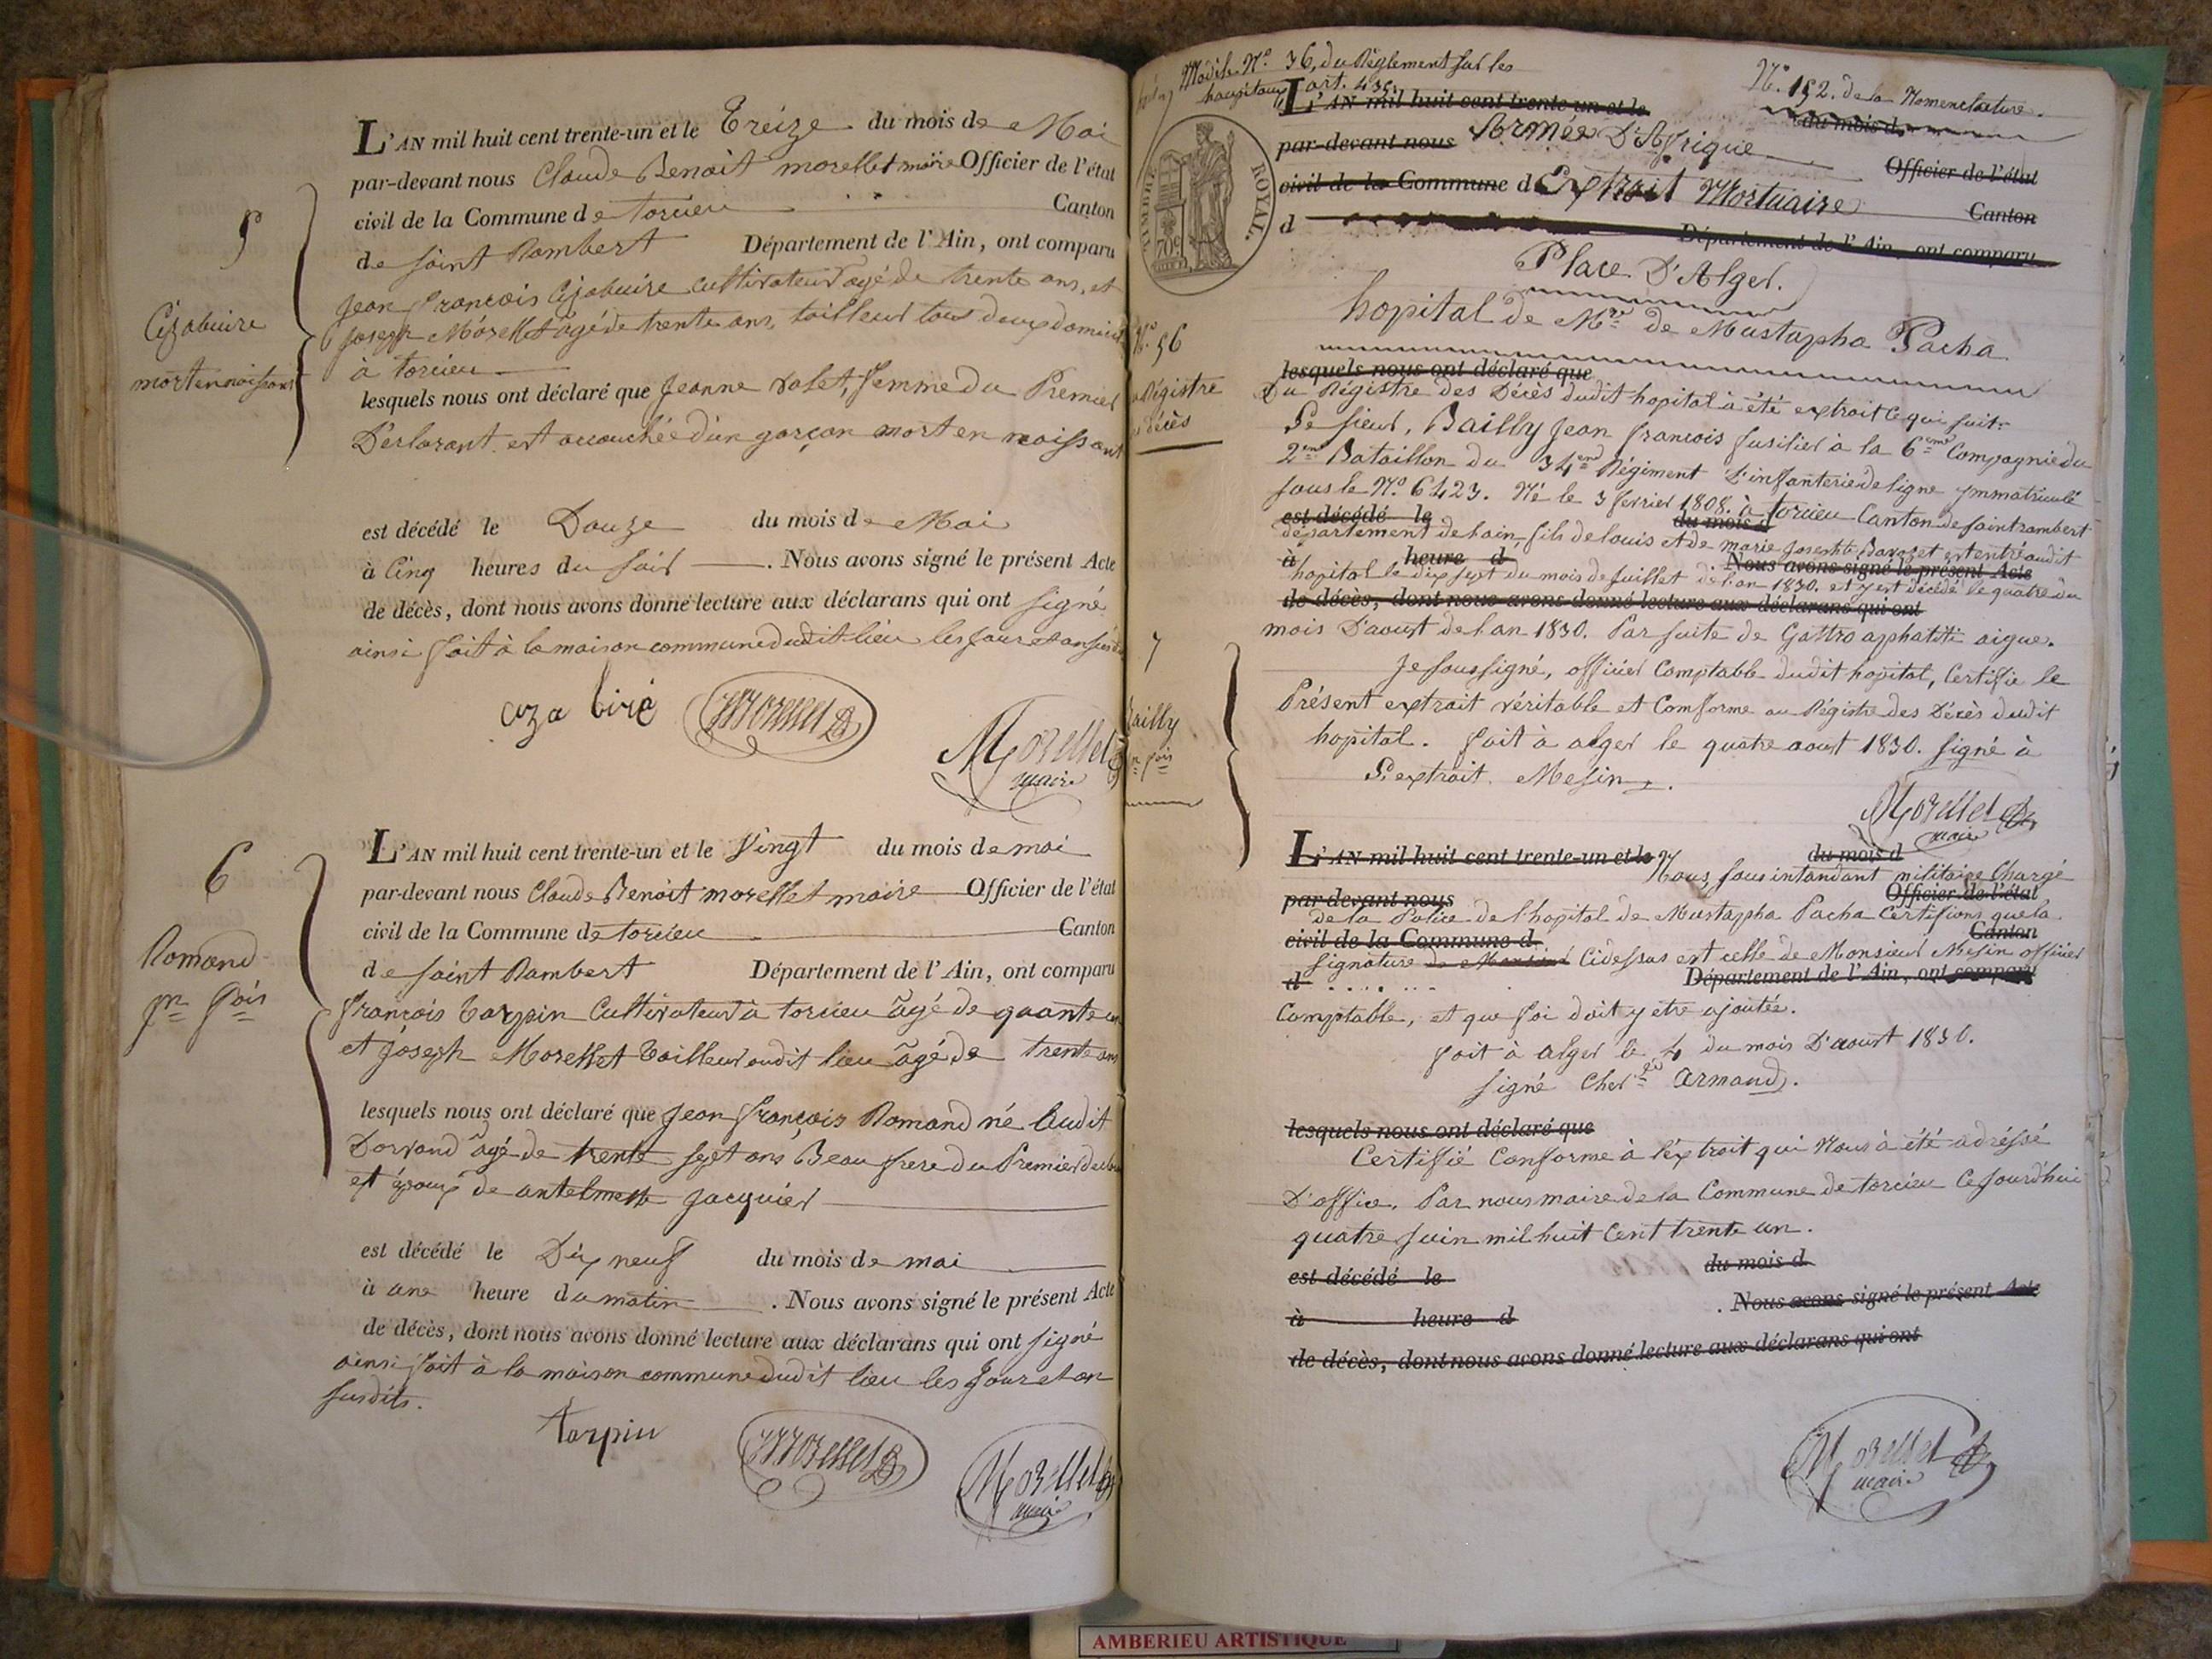 5
Cizabuire
mort en naissant
L'AN mil huit cent trente-un et le Treize du mois de Mai
par-devant nous Claude Benoit morellet maire Officier de l'état
civil de la Commune de torcieu Canton
de saint Rambert Département de l'Ain, ont comparu
Jean françois Cizabuire cultivateur agé de trente ans, et
Joseph Morellet agé de trente ans, tailleur tous deux
à torcieu
lesquels nous ont déclaré que Jeanne valet, femme du Premier
Déclarant est accouchée d'un garçon mort en naissant
est décédé le Douze du mois de Mai
à Cinq heures du soir . Nous avons signé le présent Acte
de décès, dont nous avons donné lecture aux déclarans qui ont signé
ainsi fait à la maison commune dudit lieu les jour et an
Morellet
maire
6
Romand
pre fois
L'AN mil huit cent trente-un et le Vingt du mois de mai
par-devant nous Claude Benoit morellet maire Officier de l'état
civil de la Commune de torcieu Canton
de saint Rambert Département de l'Ain, ont comparu
françois tarpin Cultivateur à torcieu âgé de
et joseph Morellet tailleur audit lieu âgé de trente ans
lesquels nous ont déclaré que Jean françois Romand né audit
Dorvand âgé de trente sept ans Beau frere du Premier
et époux de antelmette Jacquier
est décédé le Dix neuf du mois de mai
à une heure du matin . Nous avons signé le présent Acte
de décès, dont nous avons donné lecture aux déclarans qui ont signé
ainsi fait à la maison commune dudit lieu les jour et an
susdits.
tarpin
Morellet
Morellet
maire
Modèle N° 36, du Réglement sur les
hopitaux art. 435.
N° 152. de la Nomenclature.
L'AN mil huit cent trente-un et le du mois d
par-devant nous Armée D'Afrique Officier de l'état
civil de la Commune d Extrait Mortuaire Canton
d Département de l'Ain, ont comparu
TIMBRE ROYAL.
70c
Place D'Alger.
hopital de Mre de Mustapha Pacha
N° 56
Régistre
décès
lesquels nous ont déclaré que
Du Régistre des Décès dudit hopital à été extrait ce qui suit:
Le sieur, Bailly Jean françois fusilier à la 6eme Compagnie du
2em Bataillon du 34em Régiment D'infanterie de ligne immatriculé
sous le N° 6423. Né le 3 fevrier 1808. à torcieu Canton de saint rambert
est décédé le du mois d
département de lain, fils de louis et de marie Josephte est entré audit
à heure d Nous avons signé le présent Acte
hopital le dix sept du mois de Juillet de l'an 1830. et y est décédé le quatre du
de décès, dont nous avons donné lecture aux déclarans qui ont
mois D'aoust de l'an 1830. Par suite de Gattro aigue.
7
Bailly
pre fois
Je soussigné, officier Comptable dudit hopital, Certifie le
Présent extrait véritable et Comforme au Régistre des Décès dudit
hopital. fait à alger le quatre aoust 1830. signé à
L'extrait. Mesin.
Morellet
maire
L'AN mil huit cent trente-un et le du mois d
Nous, sous intandant militaire Chargé
par-devant nous Officier de l'état
de la Police de l'hopital de Mustapha Pacha Certifions que la
civil de la Commune d Canton
signature Cidessus est celle de Monsieur Mesin officier
d Département de l'Ain, ont comparu
Comptable, et que foi doit y etre ajoutée.
fait à Alger le 4 du mois D'aoust 1830.
signé Chevlier Armand.
lesquels nous ont déclaré que
Certifié Conforme à l'éxtrait qui Nous à été adréssé
D'office, Par nous maire de la Commune de torcieu Cejourd'hui
quatre Juin mil huit Cent trente un.
est décédé le du mois d
à heure d . Nous avons signé le présent Acte
de décès, dont nous avons donné lecture aux déclarans qui ont
Morellet
maire
AMBERIEU ARTISTIQUE